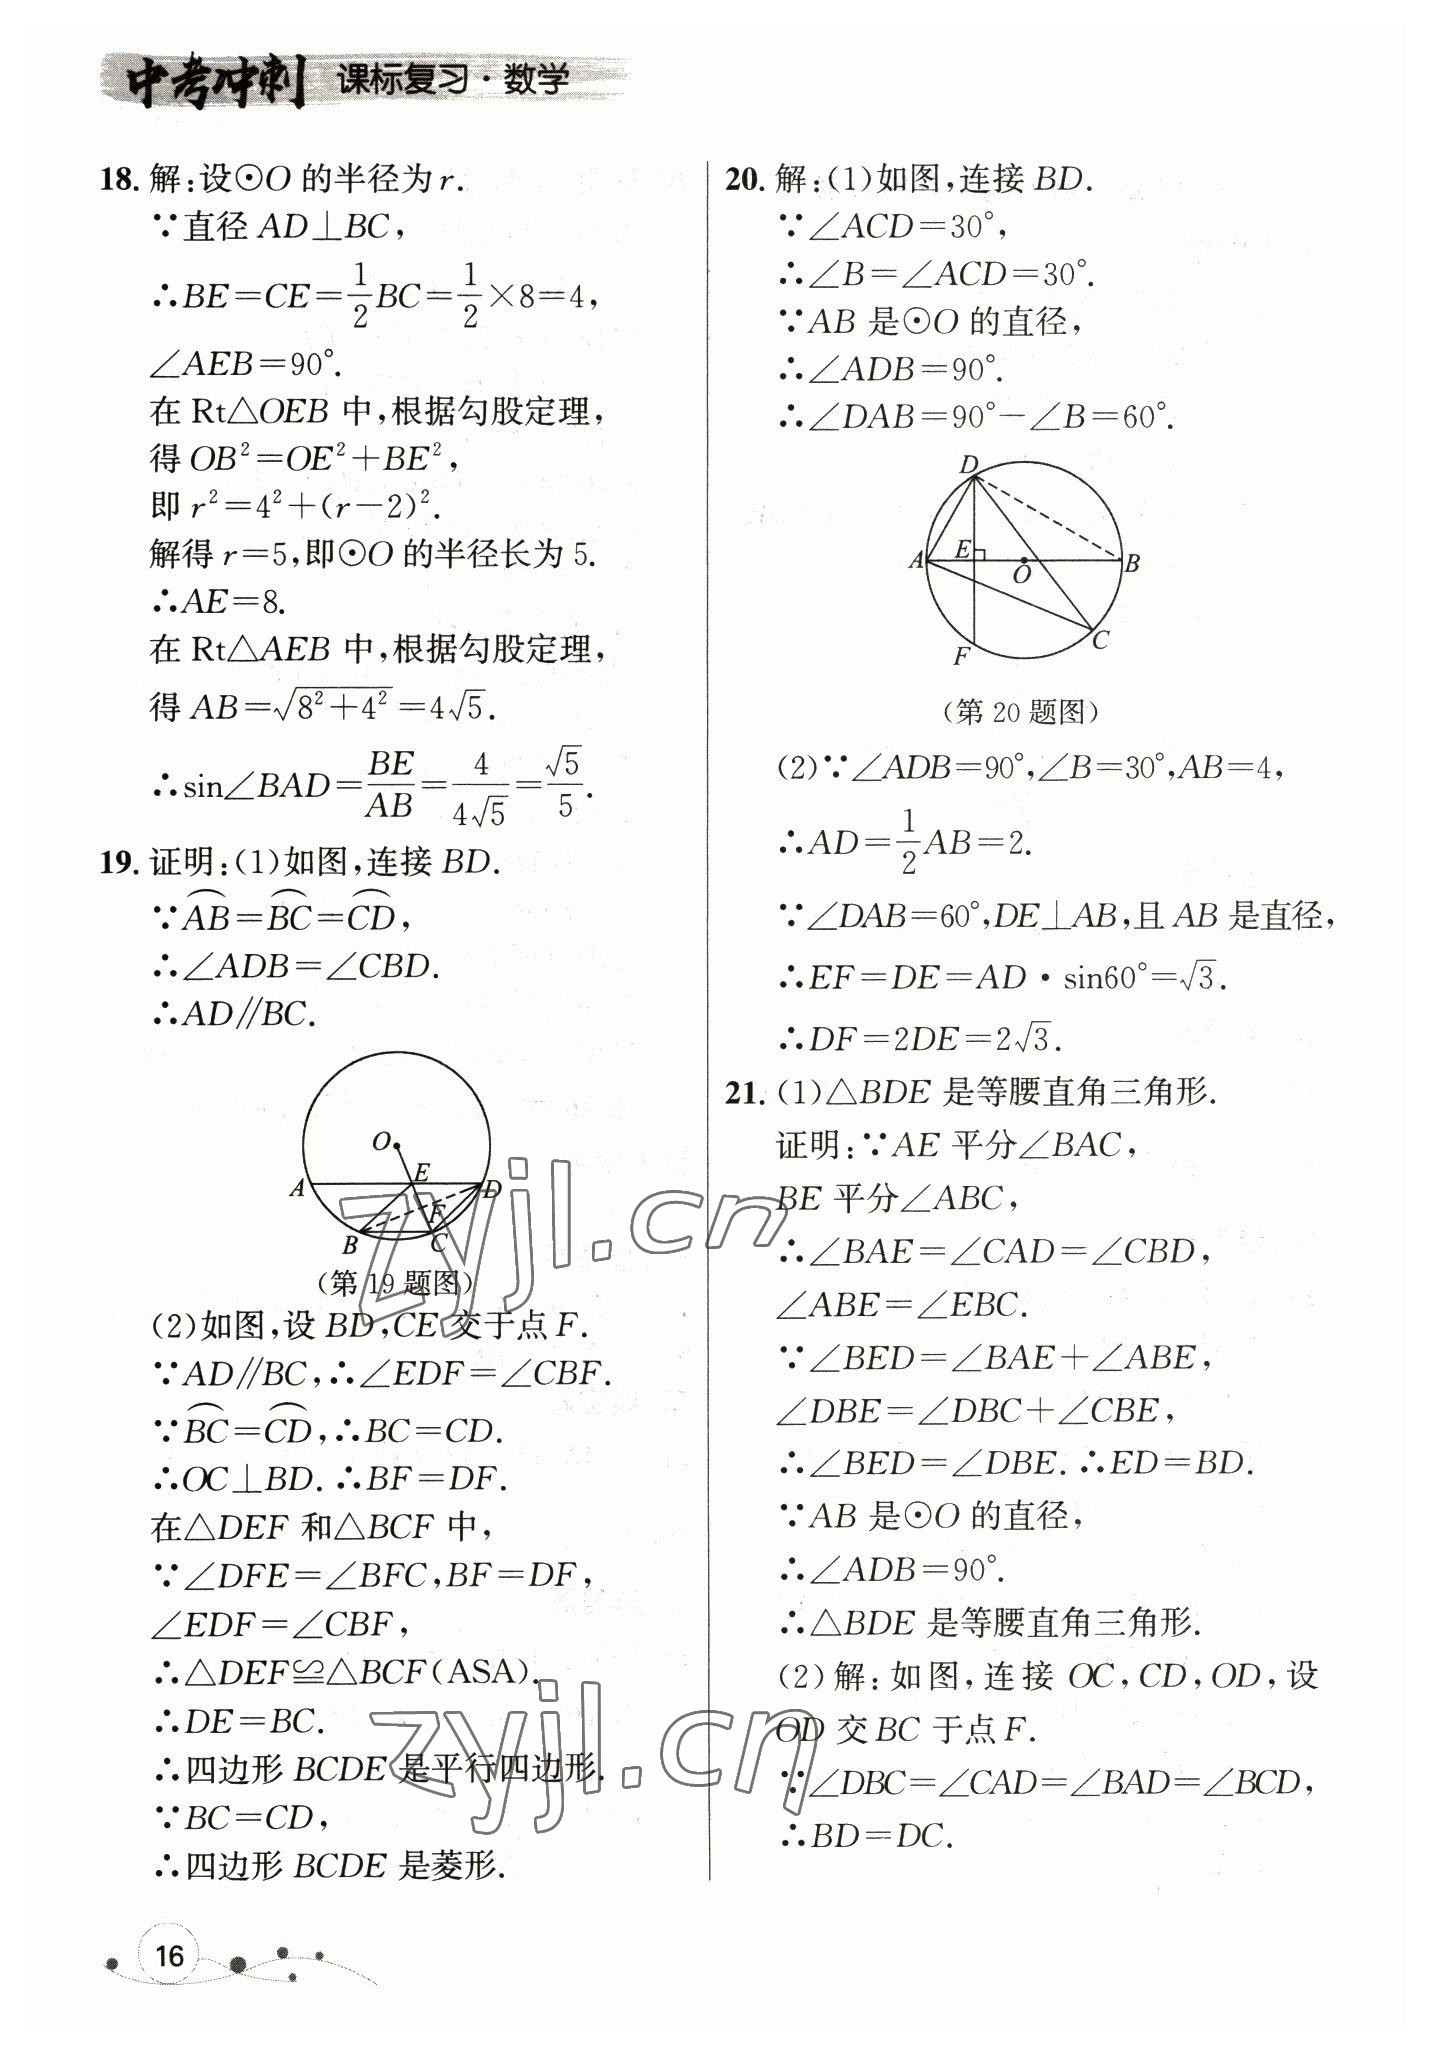 中考冲刺 课标复习·数学
18. 解:设⊙O 的半径为 r.
∵直径 AD⊥BC,
∴BE=CE=1/2BC=1/2×8=4,
∠AEB=90°.
在 Rt△OEB 中,根据勾股定理,
得 OB²=OE²+BE²,
即 r²=4²+(r-2)².
解得 r=5,即⊙O 的半径长为 5.
∴AE=8.
在 Rt△AEB 中,根据勾股定理,
得 AB=√(8²+4²)=4√5.
∴sin∠BAD=BE/AB=4/(4√5)=√5/5.
19. 证明:(1)如图,连接 BD.
∵⌒AB=⌒BC=⌒CD,
∴∠ADB=∠CBD.
∴AD∥BC.
O
A
E
D
F
B
C
(第 19 题图)
(2)如图,设 BD,CE 交于点 F.
∵AD∥BC,∴∠EDF=∠CBF.
∵⌒BC=⌒CD,∴BC=CD.
∴OC⊥BD. ∴BF=DF.
在△DEF 和△BCF 中,
∵∠DFE=∠BFC,BF=DF,
∠EDF=∠CBF,
∴△DEF≌△BCF(ASA).
∴DE=BC.
∴四边形 BCDE 是平行四边形.
∵BC=CD,
∴四边形 BCDE 是菱形.
20. 解:(1)如图,连接 BD.
∵∠ACD=30°,
∴∠B=∠ACD=30°.
∵AB 是⊙O 的直径,
∴∠ADB=90°.
∴∠DAB=90°-∠B=60°.
D
A
E
O
B
C
F
(第 20 题图)
(2)∵∠ADB=90°,∠B=30°,AB=4,
∴AD=1/2AB=2.
∵∠DAB=60°,DE⊥AB,且 AB 是直径,
∴EF=DE=AD·sin60°=√3.
∴DF=2DE=2√3.
21. (1)△BDE 是等腰直角三角形.
证明:∵AE 平分∠BAC,
BE 平分∠ABC,
∴∠BAE=∠CAD=∠CBD,
∠ABE=∠EBC.
∵∠BED=∠BAE+∠ABE,
∠DBE=∠DBC+∠CBE,
∴∠BED=∠DBE. ∴ED=BD.
∵AB 是⊙O 的直径,
∴∠ADB=90°.
∴△BDE 是等腰直角三角形.
(2)解:如图,连接 OC,CD,OD,设
OD 交 BC 于点 F.
∵∠DBC=∠CAD=∠BAD=∠BCD,
∴BD=DC.
zyjl.cn
zyjl.cn
16